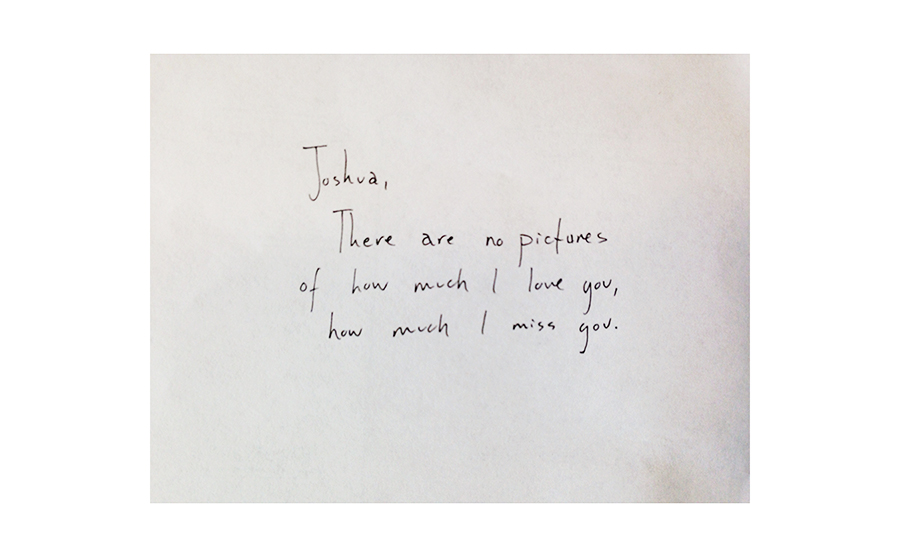 Joshua,
There are no pictures
of how much I love you,
how much I miss you.